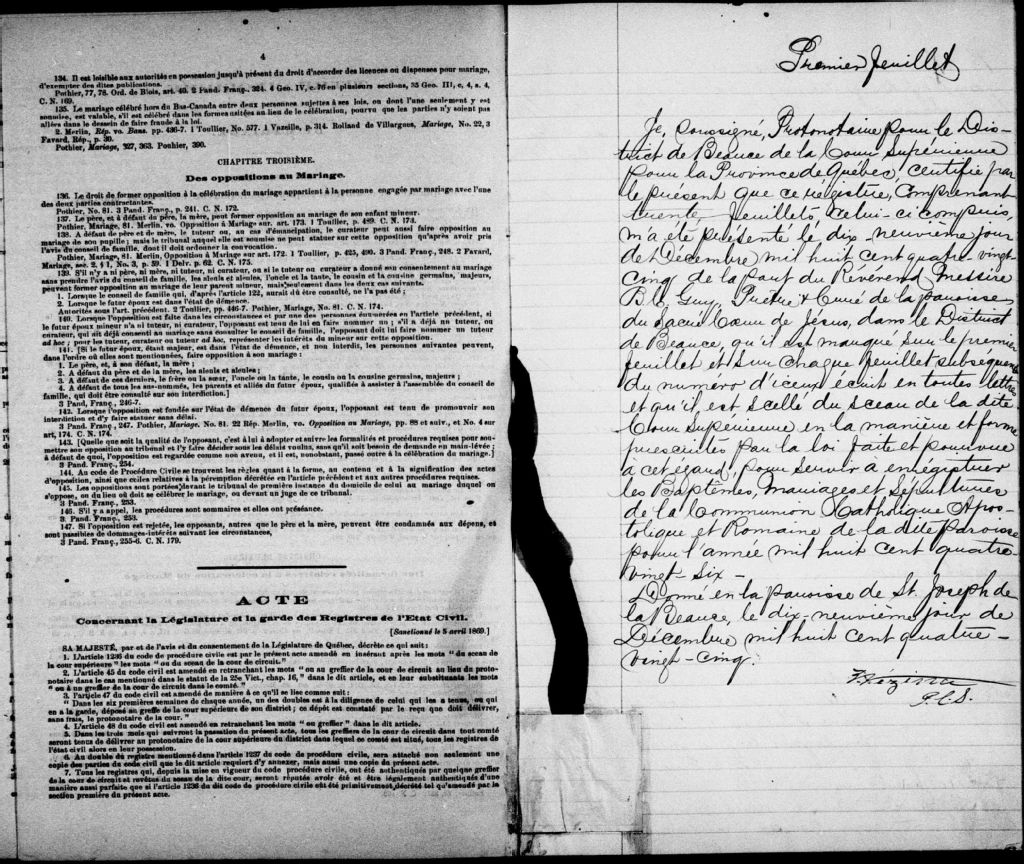 4
134. Il est loisible aux autorités en possession jusqu'à présent du droit d'accorder des licences ou dispenses pour mariage,
d'exempter des dites publications.
Pothier, 77, 78. Ord. de Blois, art. 40. 2 Pand. Franç., 324. 4 Geo. IV, c. 76 en plusieurs sections, 35 Geo. III, c, 4, s. 4,
C. N. 169.
135. Le mariage célébré hors du Bas-Canada entre deux personnes sujettes à ses lois, ou dont l'une seulement y est
soumise, est valable, s'il est célébré dans les formes usitées au lieu de la célébration, pourvu que les parties n'y soient pas
allées dans le dessein de faire fraude à la loi.
2 Merlin, Rép. vo. Bans. pp. 436-7. 1 Toullier, No. 577. 1 Vazeille, p. 314. Rolland de Villargues, Mariage, No. 22, 3
Favard, Rép., p. 30.
Pothier, Mariage, 327, 363. Pouhier, 390.
CHAPITRE TROISIÈME.
Des oppositions au Mariage.
136. Le droit de former opposition à la célébration du mariage appartient à la personne engagée par mariage avec l'une
des deux parties contractantes.
Pothier, No. 81. 3 Pand. Franç., p. 241. C. N. 172.
137. Le père, et à défaut du père, la mère, peut former opposition au mariage de son enfant mineur.
Pothier, Mariage, 81. Merlin, vo. Opposition à Mariage sur. art. 173. 1 Toullier, p. 489. C. N. 173.
138. A défaut de père et de mère, le tuteur ou, au cas d'émancipation, le curateur peut aussi faire opposition au
mariage de son pupille; mais le tribunal auquel elle est soumise ne peut statuer sur cette opposition qu'après avoir pris
l'avis du conseil de famille, dont il doit ordonner la convocation.
Pothier, Mariage, 81. Merlin, Opposition à Mariage sur art. 172. 1 Toullier, p. 425, 490. 3 Pand. Franç., 248. 2 Favard,
Mariage, sec. 2, § 1, No. 3, p. 39. 1 Delv. p. 62. C. N. 175.
139. S'il n'y a ni père, ni mère, ni tuteur, ni curateur, ou si le tuteur ou curateur a donné son consentement au mariage
sans prendre l'avis du conseil de famille, les aïeuls et aïeules, l'oncle et la tante, le cousin et la cousine germains, majeurs,
peuvent former opposition au mariage de leur parent mineur, mais seulement dans les deux cas suivants.
1. Lorsque le conseil de famille qui, d'après l'article 122, aurait dû être consulté, ne l'a pas été;
2. Lorsque le futur époux est dans l'état de démence.
Autorités sous l'art. précédent. 2 Toullier, pp. 446-7. Pothier, Mariage, No. 81. C. N. 174.
140. Lorsque l'opposition est faite dans les circonstances et par une des personnes énumérées en l'article précédent, si
le futur époux mineur n'a ni tuteur, ni curateur, l'opposant est tenu de lui en faire nommer un; s'il a déjà un tuteur, ou
curateur, qui ait déjà consenti au mariage sans consulter le conseil de famille, l'opposant doit lui faire nommer un tuteur
ad hoc; pour les tuteur, curateur ou tuteur ad hoc, représenter les intérêts du mineur sur cette opposition.
141. [Si le futur époux, étant majeur, est dans l'état de démence, et non interdit, les personnes suivantes peuvent,
dans l'ordre où elles sont mentionnées, faire opposition à son mariage :
1. Le père, et, à son défaut, la mère;
2. A défaut du père et de la mère, les aïeuls et aïeules;
3. A défaut de ces derniers, le frère ou la sœur, l'oncle ou la tante, le cousin ou la cousine germains, majeurs;
4. A défaut de tous les sus-nommés, les parents et alliés du futur époux, qualifiés à assister à l'assemblée du conseil de
famille, qui doit être consulté sur son interdiction.]
3 Pand. Franç., 246-7.
142. Lorsque l'opposition est fondée sur l'état de démence du futur époux, l'opposant est tenu de promouvoir son
interdiction et d'y faire statuer sans délai.
3 Pand. Franç., 247. Pothier, Mariage, No. 81. 22 Rép. Merlin, vo. Opposition au Mariage, pp. 88 et suiv., et No. 4 sur
art, 174. C. N. 174.
143. [Quelle que soit la qualité de l'opposant, c'est à lui à adopter et suivre les formalités et procédures requises pour sou-
mettre son opposition au tribunal et l'y faire décider sous les délais voulus, sans qu'il soit besoin de demande en main-levée;
à défaut de quoi, l'opposition est regardée comme non avenu, et il est, nonobstant, passé outre à la célébration du mariage.]
3 Pand. Franç., 234.
144. Au code de Procédure Civile se trouvent les règles quant à la forme, au contenu et à la signification des actes
d'opposition, ainsi que celles relatives à la péremption décrétée en l'article précédent et aux autres procédures requises.
145. Les oppositions sont portées devant le tribunal de première instance du domicile de celui au mariage duquel on
s'oppose, ou du lieu où doit se célébrer le mariage, ou devant un juge de ce tribunal.
3 Pand. Franç., 253.
146. S'il y a appel, les procédures sont sommaires et elles ont préséance.
3 Pand. Franç., 253.
147. Si l'opposition est rejetée, les opposants, autres que le père et la mère, peuvent être condamnés aux dépens, et
sont passibles de dommages-intérêts suivant les circonstances,
3 Pand. Franç., 255-6. C. N. 179.
ACTE
Concernant la Législature et la garde des Registres de l'Etat Civil.
[Sanctionné le 5 avril 1869.]
SA MAJESTÉ, par et de l'avis et du consentement de la Législature de Québec, décrète ce qui suit :
1. L'article 1236 du code de procédure civil est par le présent acte amendé en insérant après les mots " du sceau de
la cour supérieure " les mots " ou du sceau de la cour de circuit."
2. L'article 45 du code civil est amendé en retranchant les mots " ou au greffier de la cour de circuit au lieu du proto-
notaire dans le cas mentionné dans le statut de la 25e Vict., chap. 16, " dans le dit article, et en leur substituants les mots
" ou à un greffier de la cour de circuit dans le comté "
3. l'article 47 du code civil est amendé de manière à ce qu'il se lise comme suit :
" Dans les six premières semaines de chaque année, un des doubles est à la diligence de celui qui les a tenus, ou qui
en a la garde, déposé au greffe de la cour supérieure de son district; ce dépôt est constaté par le reçu que doit délivrer,
sans frais, le protonotaire de la cour. "
4. L'article 48 du code civil est amendé en retranchant les mots " ou greffier " dans le dit article.
5. Dans les trois mois qui suivront la passation du présent acte, tous les greffiers de la cour de circuit dans tout comté
seront tenus de délivrer au protonotaire de la cour supérieure du district dans lequel ce comté est situé, tous les registres de
l'état civil alors en leur possession.
6. Au double du registre mentionné dans l'article 1237 du code de procédure civile, sera attaché non seulement une
copie des parties du code civil que le dit article requiert d'y annexer, mais aussi une copie du présent acte.
7. Tous les registres qui, depuis la mise en vigueur du code procédure civile, ont été authentiqués par quelque greffier
de la cour de circuit et revêtus du sceau de la dite cour, seront réputés avoir été et être légalement authentiqués d'une
manière aussi parfaite que si l'article 1236 du dit code de procédure civile eut été primitivement décrété tel qu'amendé par la
section première du présent acte.
Premier feuillet
Je, soussigné, Protonotaire pour le Dis-
trict de Beauce de la Cour Supérieure
pour la Province de Québec, certifie par
le présent que ce régistre, Comprenant
trente feuillets celui-ci compris,
m'a été présenté le dix-neuvième jour
de Décembre mil huit cent quatre vingt-
cinq de la part du Révérend Messire
Guy, Prêtre & Curé de la paroisse
du Sacré Cœur de Jésus, dans le District
de Beauce, qu'il est marqué sur le premier
feuillet et sur chaque feuillet subséquent
du numéro d'iceux écrit en toutes lettres
et qu'il est scellé du sceau de la dite
Cour Supérieure en la manière et forme
prescrites par la loi faite et pourvue
à cet égard, pour servir à enrégistrer
les Baptêmes, Mariages et Sépultures
de la Communion Catholique Apos-
tolique et Romaine de la dite paroisse
pour l'année mil huit cent quatre-
vingt-six -
Donné en la paroisse de St. Joseph de
la Beauce, le dix-neuvième jour de
Décembre mil huit cent quatre-
vingt-cinq.
P.C.S.